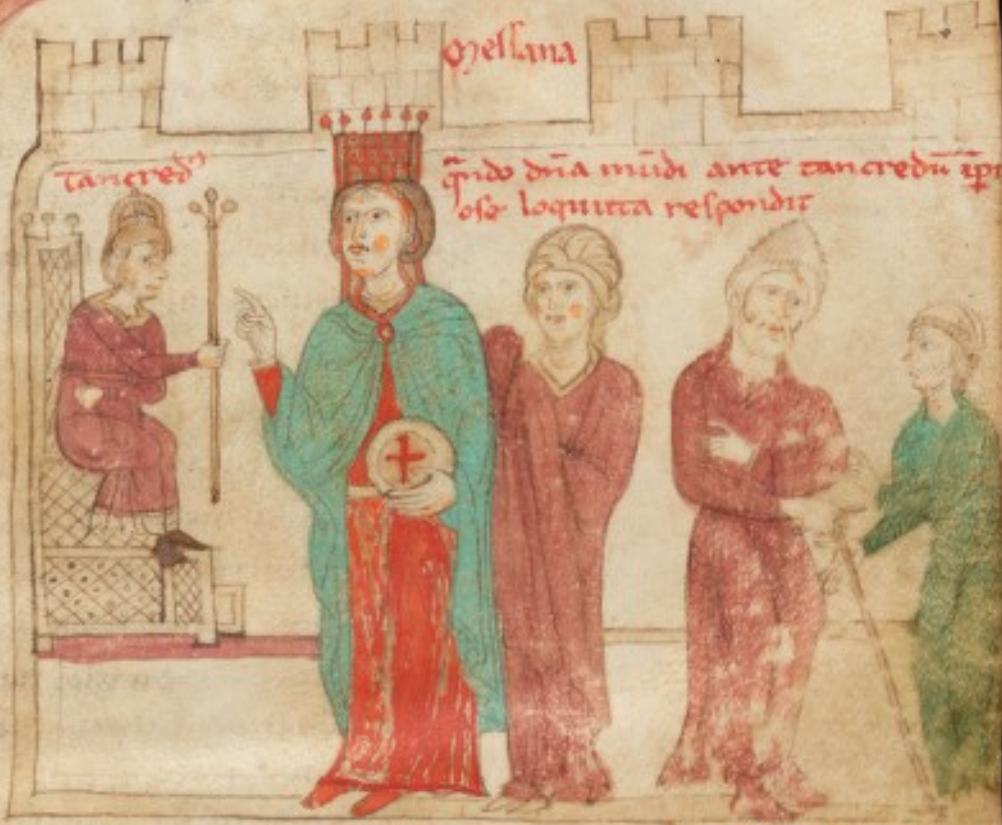 Messana
Tancred᷒
q̃ndo dña mũdi ante tancredũ ip̃i
ose loquuta respondit